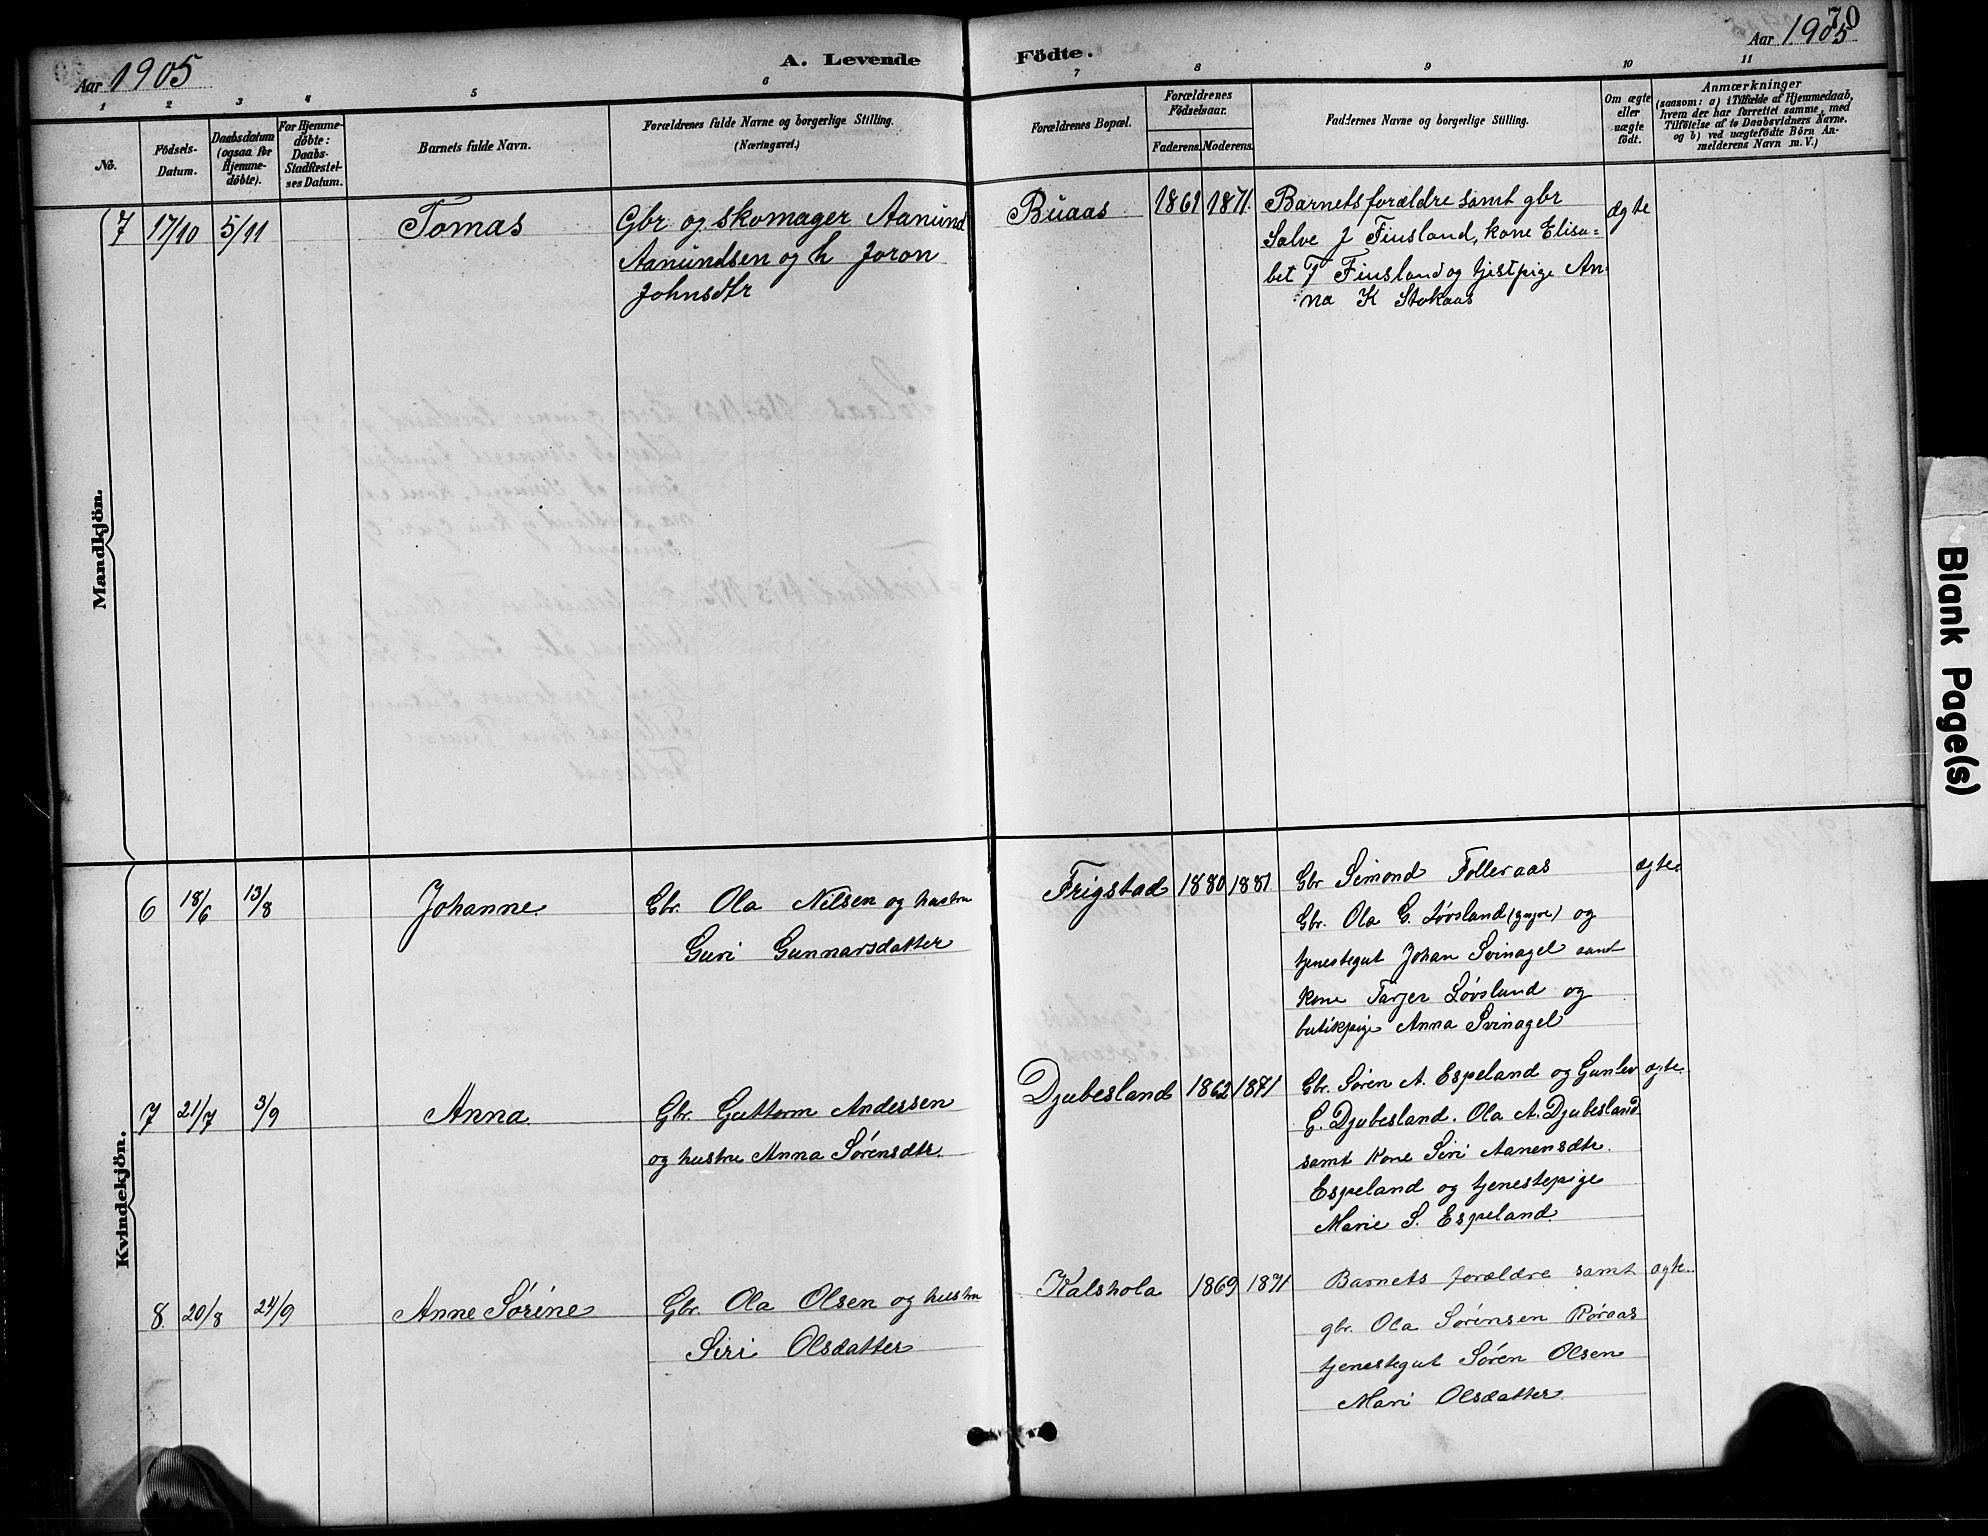 Aar 1905
A. Levende
Födte.
70
Aar 1905
1 2 3 4 5 6 7 8 9 10 11
No.
Födsels-
Datum.
Daabsdatum
(ogsaa for
Hjemme-
döbte).
For Hjemme-
döbte:
Daabs-
Stadfæstel-
ses Datum.
Barnets fulde Navn.
Forældrenes fulde Navne og borgerlige Stilling.
(Næringsvei.)
Forældrenes Bopæl.
Forældrenes
Födselsaar.
Faderens. Moderens.
Faddernes Navne og borgerlige Stilling.
Om ægte
eller
uægte
födt.
Anmærkninger
(saasom: a) i Tilfælde af Hjemmedaab,
hvem der har forrettet samme, med
Tilföielse af to Daabsvidners Navne.
og b) ved uægtefödte Börn An-
melderens Navn m. V.)
Mandkjön.
7 17/10 5/11 Tomas Gbr og skomager Aanund Buaas 1861 1871. Barnets forældre samt gbr ægte
Aanundsen og h Joron Salve J Finsland, kone Elisa=
Johnsdtr bet T Finsland og tjistpige An
na K Stokaas
Kvindekjön.
6 18/6 13/8 Johanne Gbr. Ola Nilsen og hustru Frigstad 1880 1881 Gbr Simond Folleraas ægte.
Guri Gunnarsdatter Gbr. Ola G. Løvsland (yngre) og
tjenestegut Johan Svinagel samt
kone Tarjer Løvsland og
butikpige Anna Svinagel
7 21/7 3/9 Anna Gbr. Guttorm Andersen Djubesland 1862 1871 Gbr. Søren A. Espeland og Gunlev ægte.
og hustru Anna Sørensdtr. G. Djubesland. Ola A. Djubesland
samt kone Siri Aanensdtr.
Espeland og tjenestepige
Marie S. Espeland.
8. 20/8 24/9 Anne Sørine Gbr. Ola Olsen og hustru Kalshola 1869 1871 Barnets forældre samt ægte.
Siri Olsdatter gbr. Ola Sørensen Røraas
tjenestegut Søren Olsen
Mari Olsdatter.
Blank Page(s)